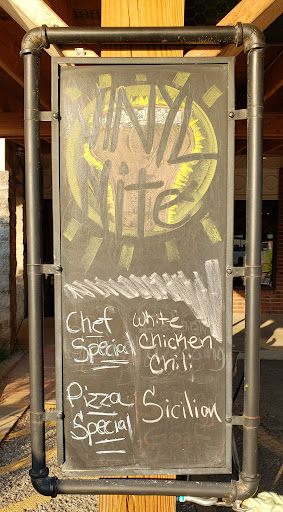 VINYL
Nite
Chef
Special
White
Chicken
Chili
Pizza
Special
Sicilian